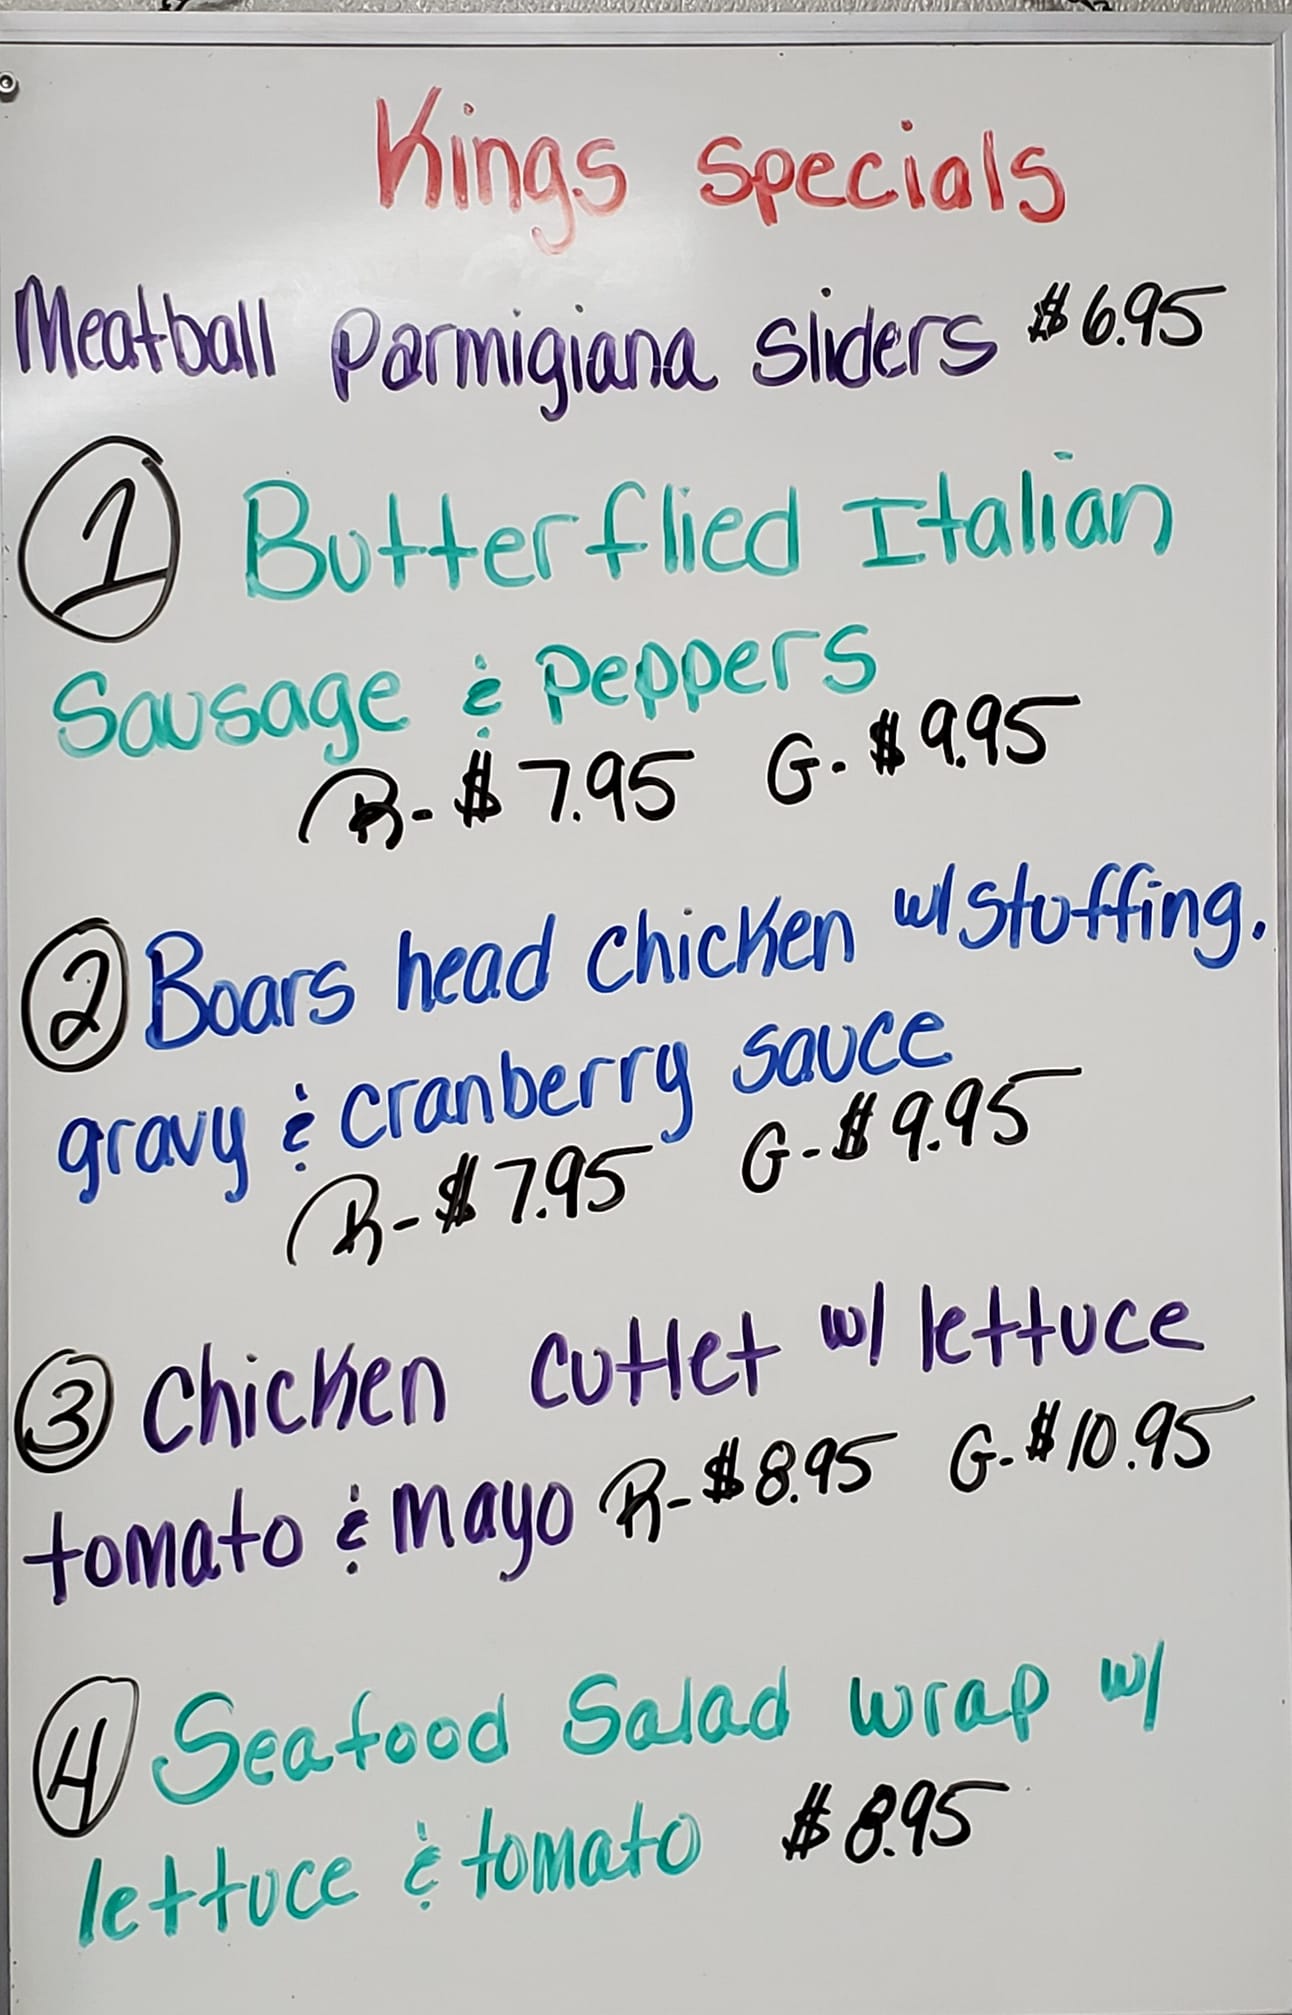 Kings Specials
Meatball Parmigiana Sliders $6.95
1 Butterflied Italian
Sausage & Peppers
R-$7.95 G-$9.95
2 Boars head chicken w/stuffing.
gravy & cranberry sauce
R-$7.95 G-$9.95
3 Chicken cutlet w/ lettuce
tomato & mayo R-$8.95 G-$10.95
4 Seafood Salad wrap w/
lettuce & tomato $8.95